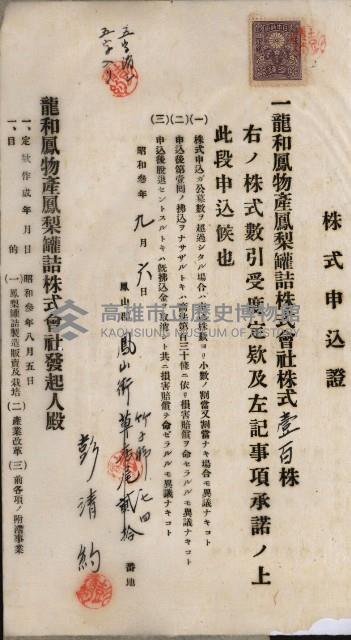 株式申込證
一龍和鳳物產鳳梨罐詰株式會社株式壹百株
右ノ株式數引受度定款及左記事項承諾ノ上
此段申込候也
(一) 株式申込ガ公募數ヲ超過シタル場合ハ申込株數ヨリ小數ノ割當又割當ナキ場合モ異議ナキコト
(二) 申込後第壹回ノ拂込ヲナサザルトキハ商法第百三十條ニ依リ損害賠償ヲ命セラルルモ異議ナキコト
(三) 申込後脫退セントスルトキハ既拂込金ヲ沒收シ共ニ損害賠償ヲ命ゼラルルモ異議ナキコト
昭和參年九月六日
鳳山郡鳳山街
番地
彭清約
龍和鳳物產鳳梨罐詰株式會社發起人殿
一、定款作成年月日 昭和參年八月五日
一、目的 (一)鳳梨罐詰製造販賣及栽培 (二)產業改革 (三)前各項ノ附滯事業
高雄市立歷史博物館
KAOHSIUNG MUSEUM OF HISTORY